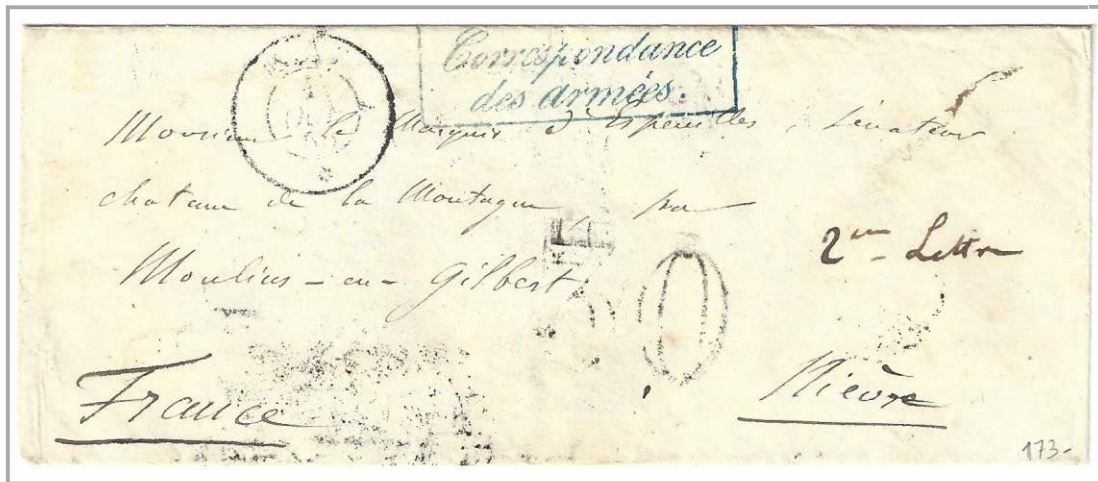 Correspondance
des armées.
Monsieur le Marquis d'Espeuilles, Sénateur
chateau de la Montagne par
2me Lettre
Moulins-en-Gilbert
France
Nièvre
173-